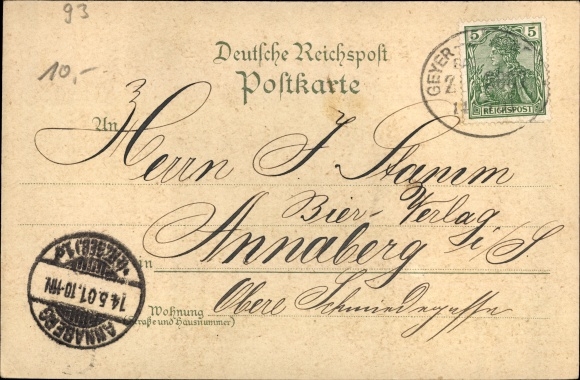 93
10,-
Deutsche Reichspost
Postkarte
5 5
REICHSPOST
GEYER
An
Herrn J. Stamm
Bier-Verlag
in Annaberg i/S.
Obere Schmiedegasse
Wohnung
(Straße und Hausnummer)
ANNABERG
14.5.01.10-11V.
(ERZGEB.) 1.a